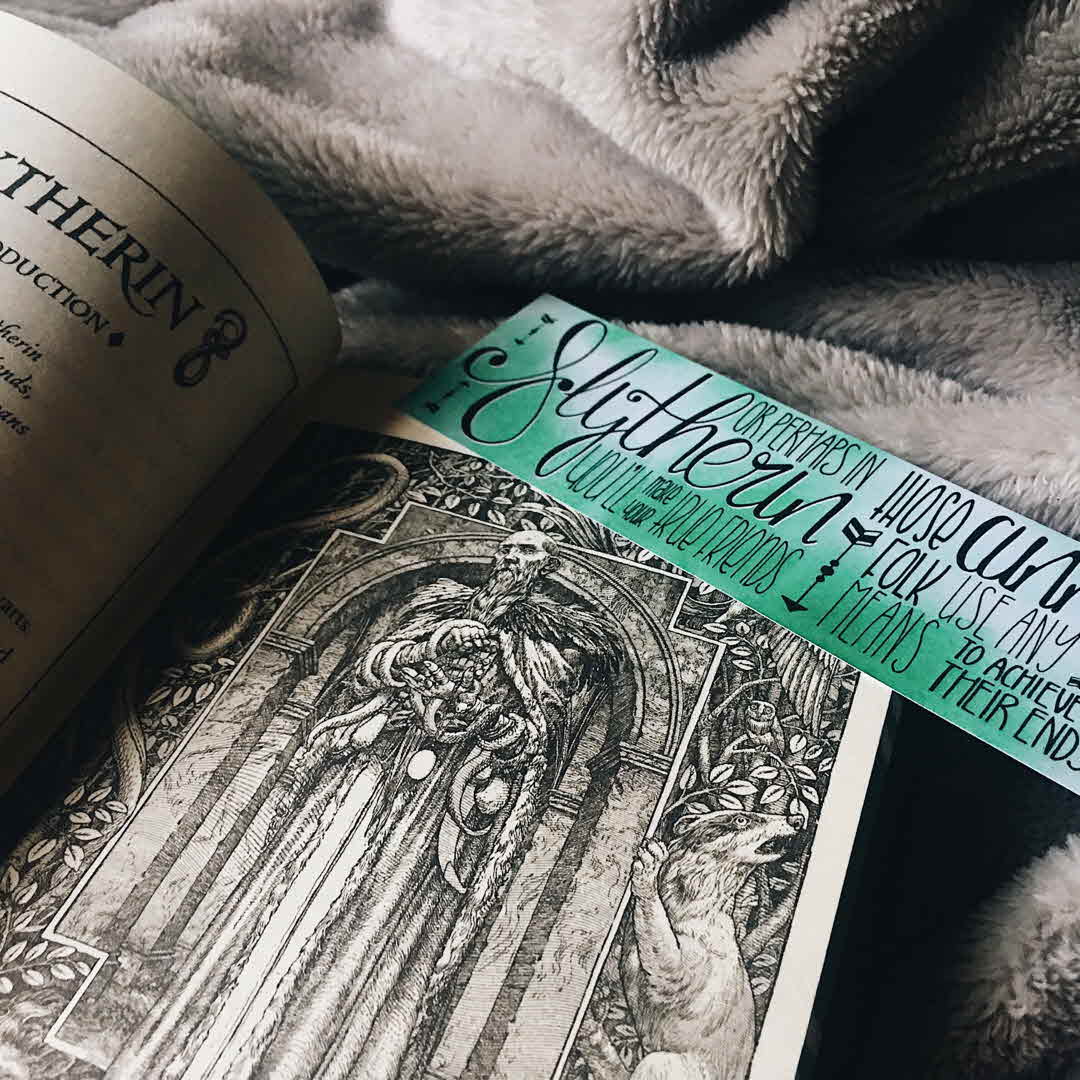 YTHERIN
ODUCTION
herin
ends,
eans
arts
d
OR PERHAPS IN
Slytherin
YOU'LL MAKE
YOUR TRUE FRIENDS
THOSE CUN
FOLK USE ANY
MEANS TO ACHIEVE
THEIR ENDS